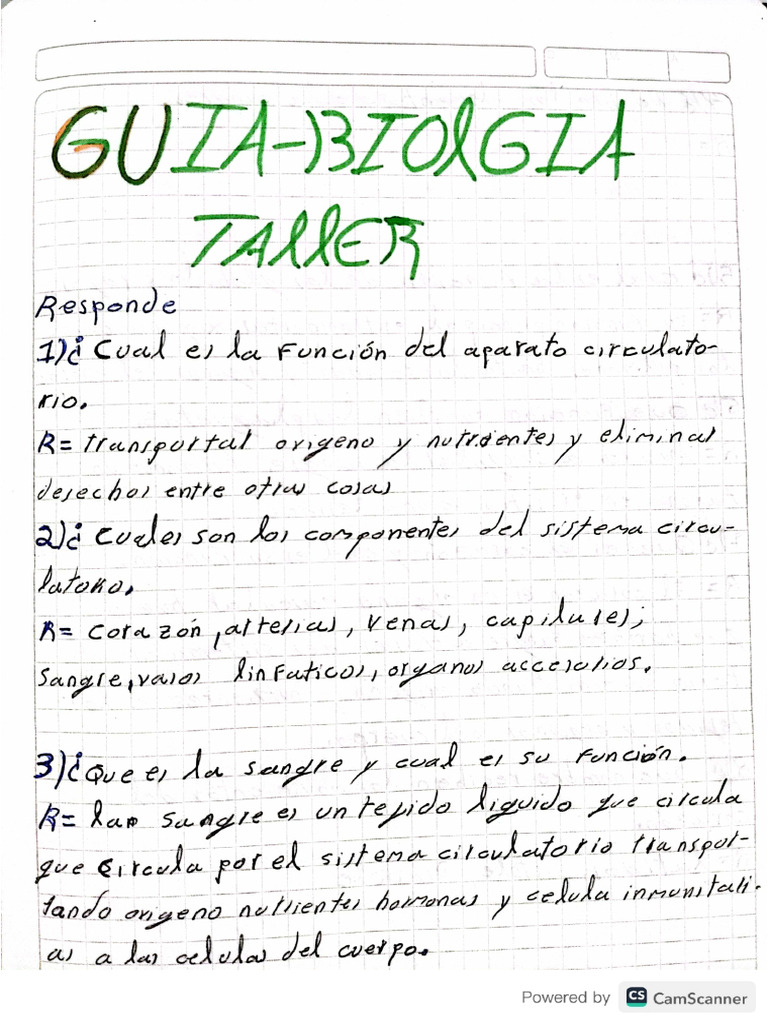 GUIA-BIOlGIA
TAllER
Responde
1)¿Cual es la Función del aparato circulato-
rio.
R= transportar oxigeno y nutrientes y eliminar
desechos entre otras cosas
2)¿Cuales son los componentes del sistema circu-
latorio.
R= corazón, arterias, venas, capilares,
sangre, vasos linfaticos, organos accesorios.
3)¿Que es la sangre y cual es su función.
R= la sangre es un tejido liquido que circula
que circula por el sistema circulatorio transpor-
tando oxigeno nutrientes hormonas y celula inmunitari-
as a las celulas del cuerpo.
Powered by CS CamScanner